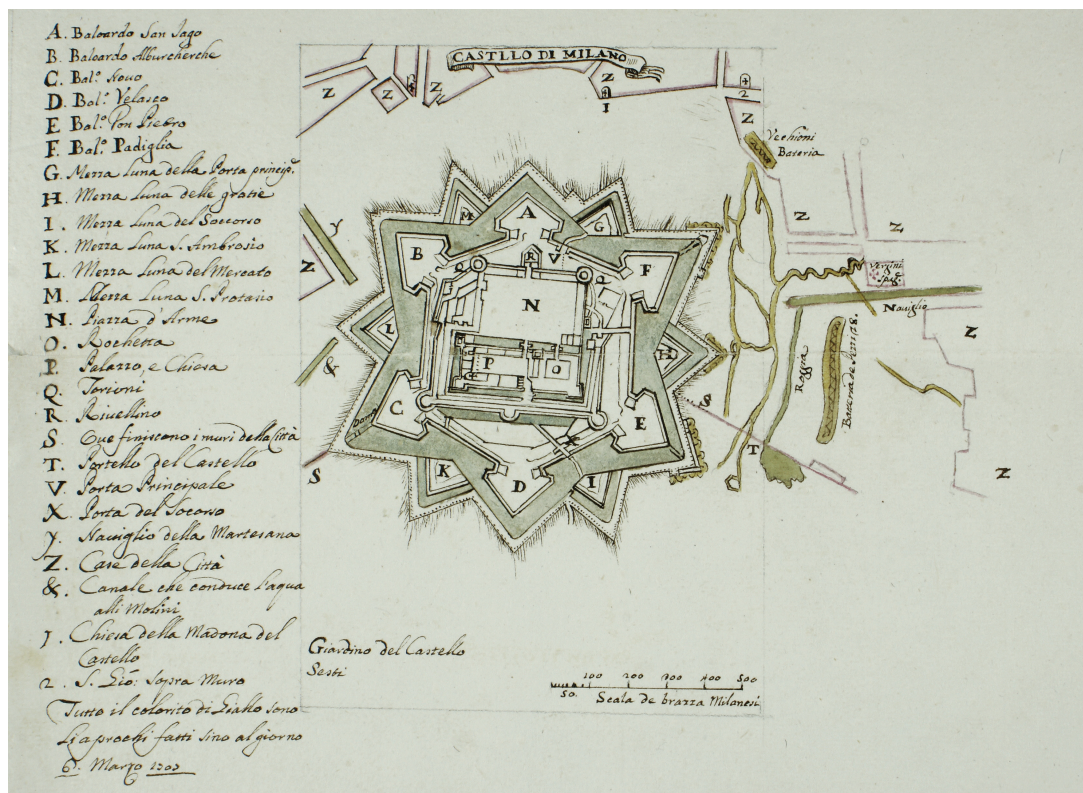 A. Baloardo San Jago
B. Baloardo Alburcherche
C. Bal.º Nouo
D. Bal.º Velasco
E Bal.º Don Pietro
F. Bal.º Padiglia
G. Mezza Luna della Porta princip.
H. Mezza Luna delle gratie
I. Mezza Luna del Soccorso
K. Mezza Luna S. Ambrosio
L. Mezza Luna del Mercato
M. Mezza Luna S. Protasio
N. Piazza d'Arme
O. Rochetta
P. Palazzo, e Chiesa
Q. Torioni
R. Riuellino
S. Oue finiscono i muri della Città
T. Portello del Castello
V. Porta Principale
X. Porta del Socorso
y. Nauiglio della Martesana
Z. Case della Città
&. Canale che conduce l'aqua
alli Molini
1. Chiesa della Madona del
Castello
2. S. Gio: sopra Muro
Tutto il colorito di Giallo sono
Li aprochi fatti sino al giorno
6. Marzo 1707
CASTLLO DI MILANO
Z
Z
Z
Z
1
2
Z
Vechioni
Bateria
M
A
G
y
Z
Z
Z
B
Q
R
V
Q
F
Vergini
Spag.
N
Nauiglio
L
H
Z
&
P
O
Roggia
Batteria de
C
S
E
X
T
S
K
D
I
Z
Giardino del Castello
Sesti
100 200 300 400 500
50.
Scala de brazza Milanesi